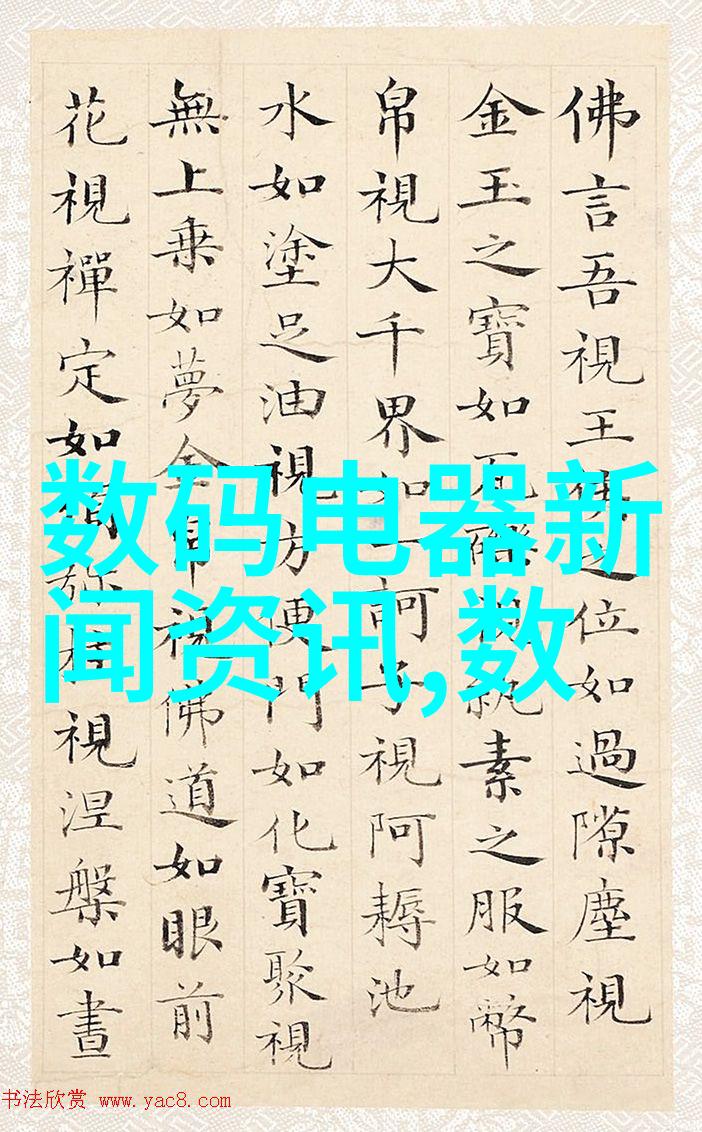 佛言吾視王侯之位如過隙塵視
金玉之寶如瓦礫視紈素之服如幣
帛視大千界如一訶子視阿耨池
水如塗足油視方便門如化寶聚視
無上乗如夢金帛視佛道如眼前
花視禪定如須弥柱視涅槃如晝
数码电器新
闻资讯,数
书法欣赏 www.yac8.com